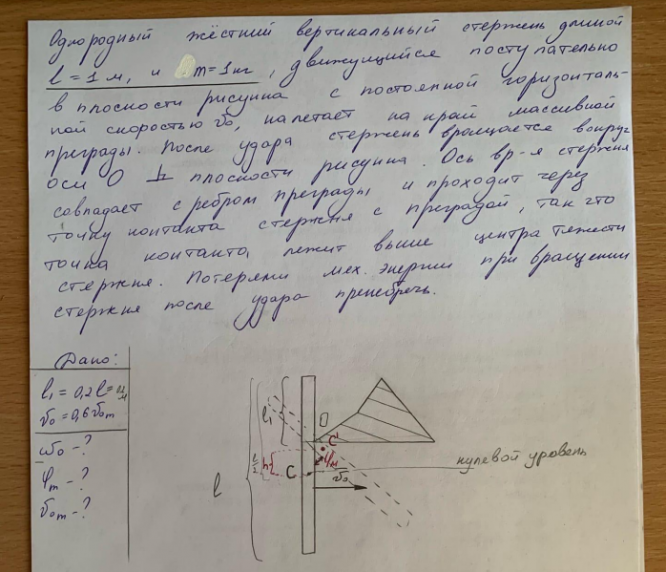 Однородный жёсткий вертикальный стержень длиной
l = 1 м, и m = 1 кг, движущийся поступательно
в плоскости рисунка с постоянной горизонталь-
ной скоростью v₀, налетает на край массивной
преграды. После удара стержень вращается вокруг
оси О ⊥ плоскости рисунка. Ось вр-я стержня
совпадает с ребром преграды и проходит через
точку контакта стержня с преградой, так что
точка контакта лежит выше центра тяжести
стержня. Потерями мех. энергии при вращении
стержня после удара пренебречь.
Дано:
l₁ = 0,2l =
v₀ = 0,6v₀m
ω₀ - ?
φm - ?
v₀m - ?
l
l/2
l₁
h
O
C'
φm
C
v₀
нулевой уровень